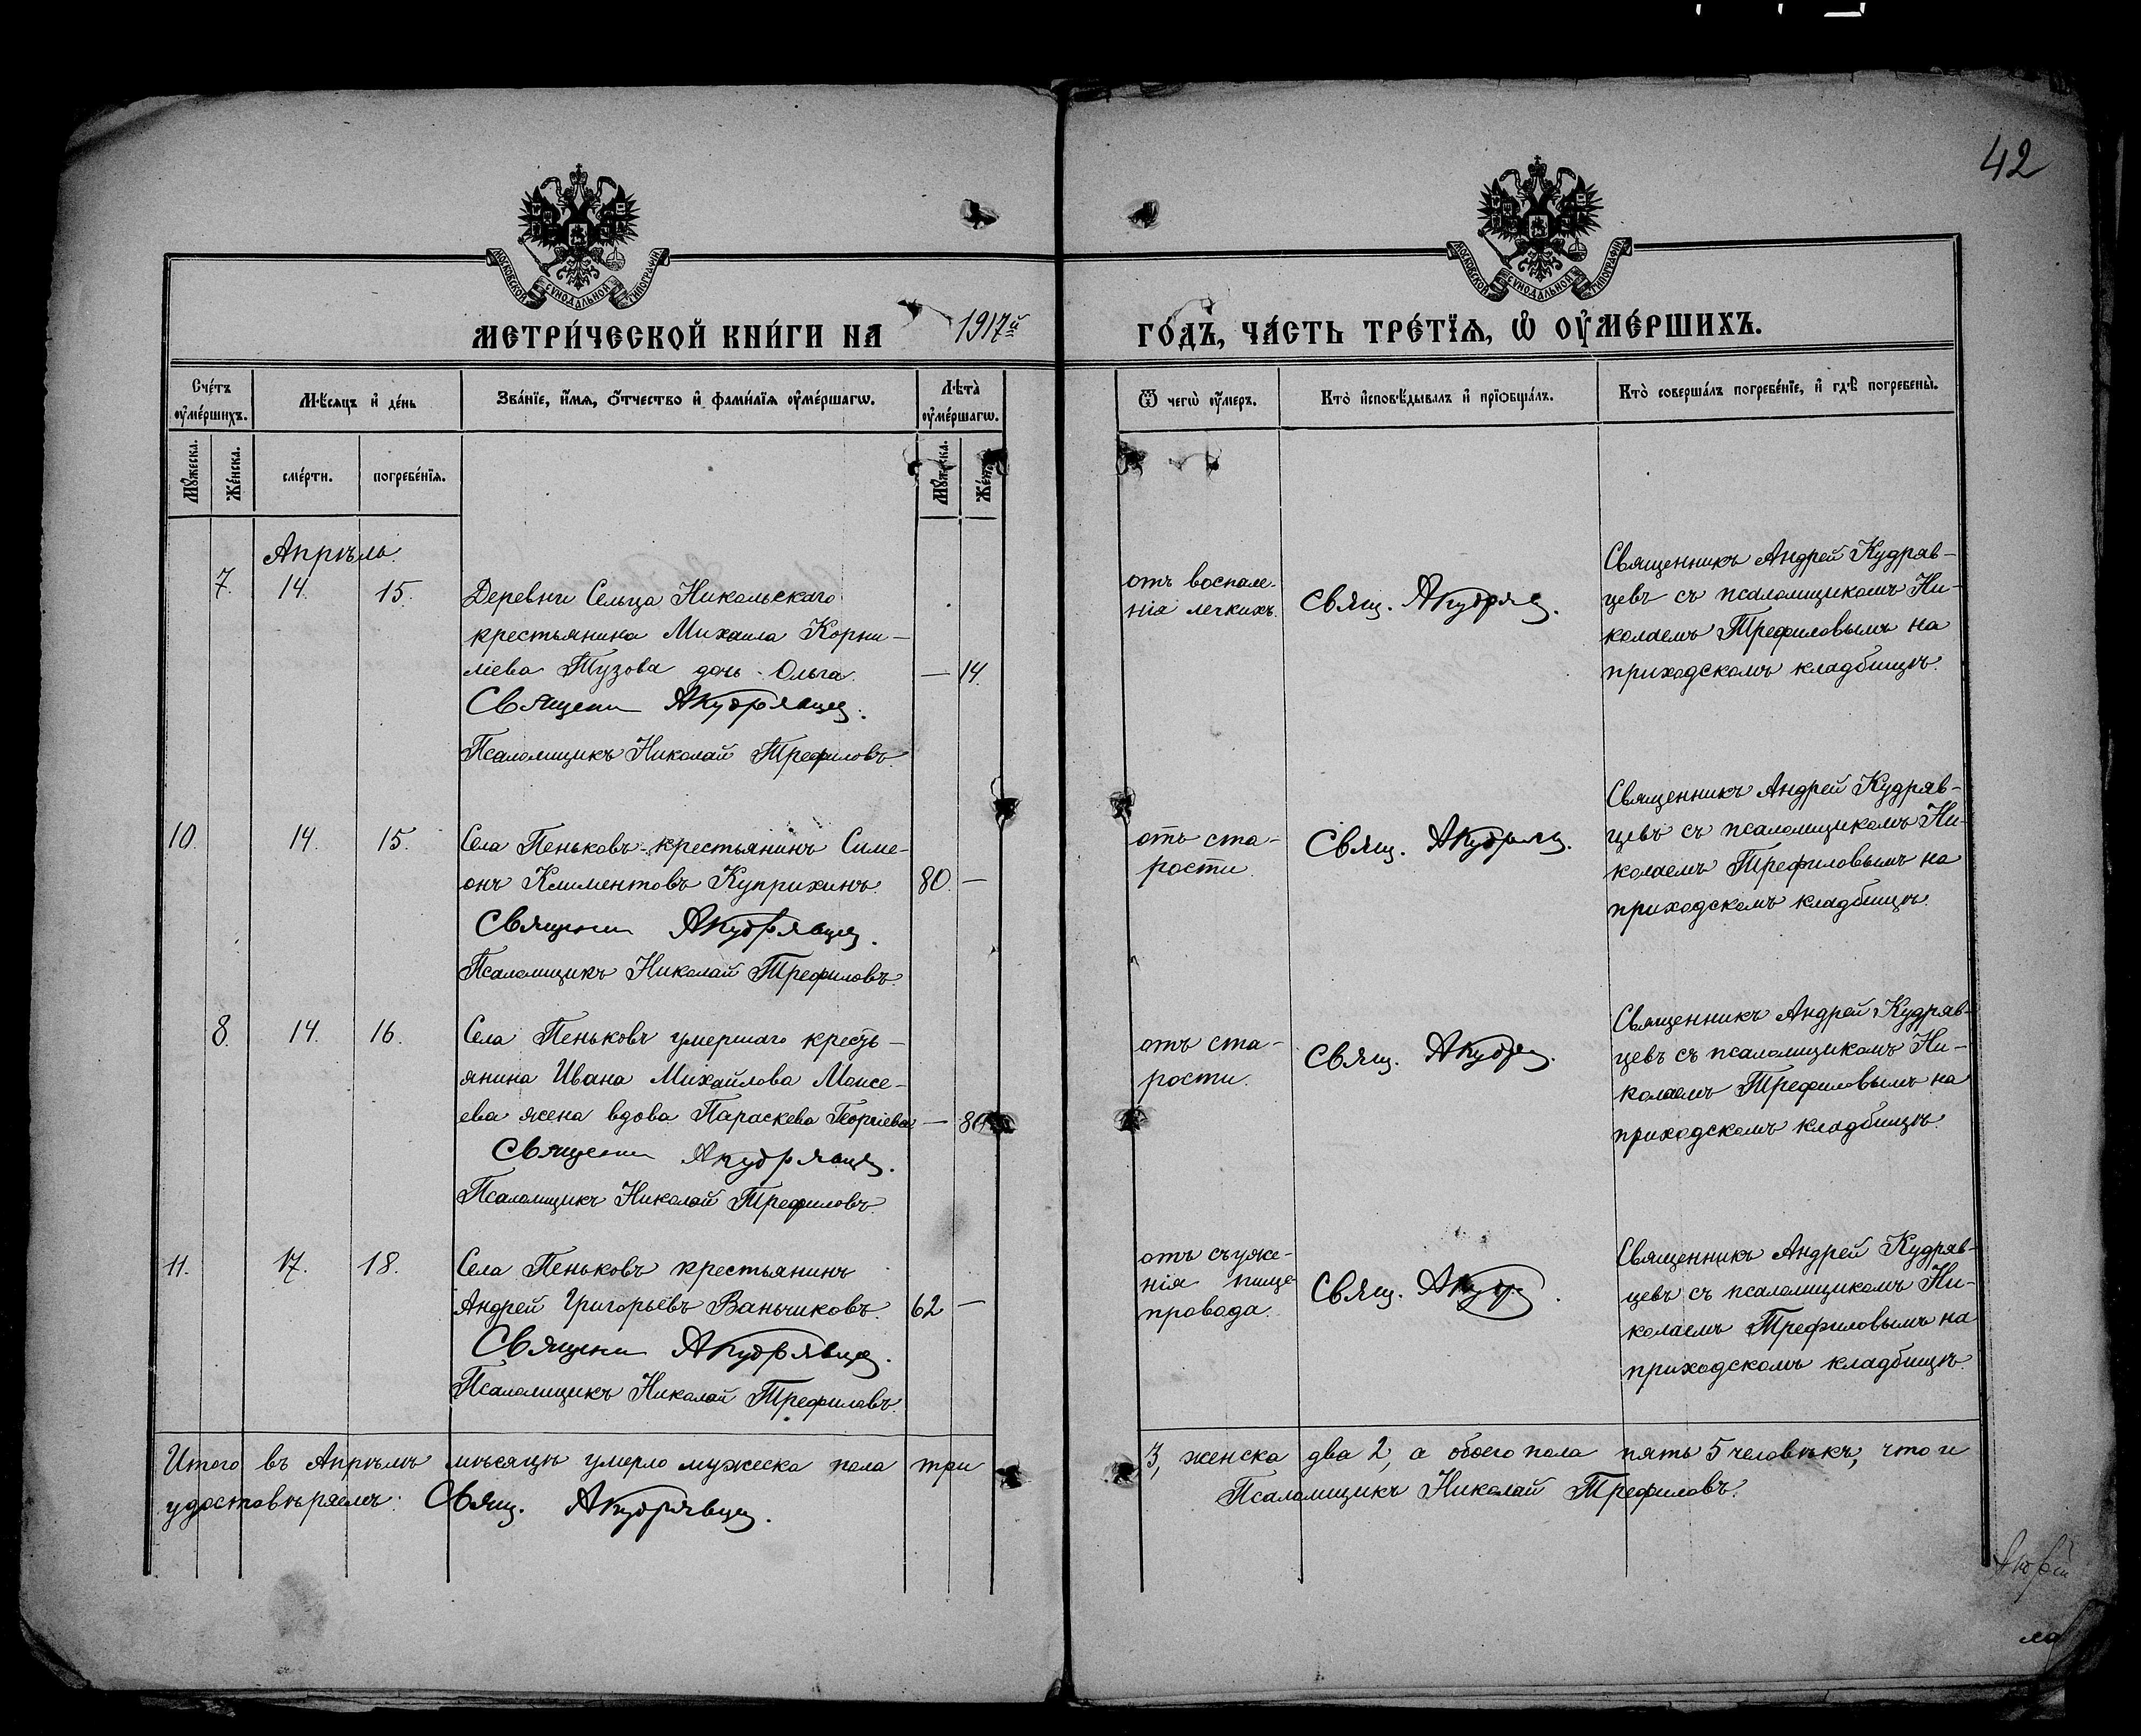 42
МОСКОВСКОЙ СѴНОДАЛЬНОЙ ТИПОГРАФІИ
МОСКОВСКОЙ СѴНОДАЛЬНОЙ ТИПОГРАФІИ
МЕТРИ́ЧЕСКОЙ КНИ́ГИ НА 1917й ГОДЪ, ЧА́СТЬ ТРЕ́ТЇѦ, Ѡ ОУ҆МЕ́РШИХЪ.
Сче́тъ оу҆ме́ршихъ.
Мѣ́сяцъ и҆ де́нь
Зва́нїе, и҆́мѧ, ѻ҆́тчество и҆ фами́лїѧ оу҆ме́ршагѡ.
Лѣ́та оу҆ме́ршагѡ.
Ѿ чегѡ̀ оу҆́меръ.
Кто̀ и҆сповѣ́дывалъ и҆ прїѡбща́лъ.
Кто̀ соверша́лъ погребе́нїе, и҆ гдѣ̀ погребены̀.
Мꙋ́жеска.
Же́нска.
сме́рти.
погребе́нїѧ.
Апрѣль.
7. 14. 15.
Деревни Сельца Никольскаго
крестьянина Михаила Корни-
ліева Тузова дочь Ольга. — 14.
Священн АКудрявцев.
Псаломщикъ Николай Трефиловъ.
отъ воспале-
нія легкихъ.
Свящ. АКудряв.
Священникъ Андрей Кудряв-
цевъ съ псаломщикомъ Ни-
колаемъ Трефиловымъ на
приходскомъ кладбищѣ.
10. 14. 15.
Села Пеньковъ крестьянинъ Симе-
онъ Климентовъ Куприхинъ. 80. —
Священн АКудрявцев.
Псаломщикъ Николай Трефиловъ.
отъ ста-
рости.
Свящ. АКудрявц.
Священникъ Андрей Кудряв-
цевъ съ псаломщикомъ Ни-
колаемъ Трефиловымъ на
приходскомъ кладбищѣ.
8. 14. 16.
Села Пеньковъ умершаго кресть-
янина Ивана Михайлова Моисе-
ева жена вдова Параскева Георгіева —
Священн АКудрявцев.
Псаломщикъ Николай Трефиловъ.
отъ ста-
рости.
Свящ. АКудрв.
Священникъ Андрей Кудряв-
цевъ съ псаломщикомъ Ни-
колаемъ Трефиловымъ на
приходскомъ кладбищѣ.
11. 17. 18.
Села Пеньковъ крестьянинъ
Андрей Григорьевъ Ваньчиковъ. 62 —
Священн АКудрявцев.
Псаломщикъ Николай Трефиловъ.
отъ съуже-
нія пище-
провода.
Свящ. АКудр.
Священникъ Андрей Кудряв-
цевъ съ псаломщикомъ Ни-
колаемъ Трефиловымъ на
приходскомъ кладбищѣ.
Итого въ Апрѣлѣ мѣсяцѣ умерло мужеска пола три 3, женска два 2, а обоего пола пять 5 человѣкъ, что и
удостовѣряемъ: Свящ. АКудрявцев. Псаломщикъ Николай Трефиловъ.